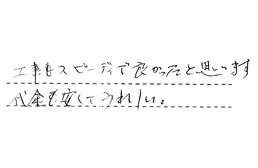 工事もスピーディで良かったと思います
代金も安くてうれしい。